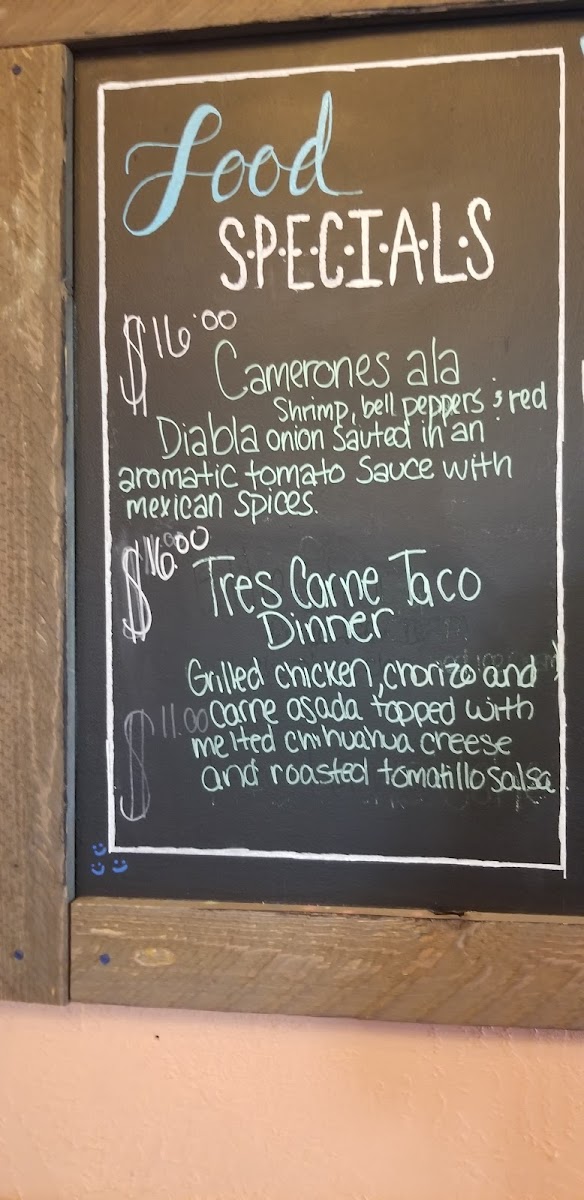 Food
S·P·E·C·I·A·L·S
$16.00
Camerones ala
Shrimp, bell peppers & red
Diabla onion Sauted in an
aromatic tomato Sauce with
mexican spices.
$16.00
Tres Carne Taco
Dinner
Grilled chicken, chorizo and
$11.00 carne asada topped with
melted chihuahua cheese
and roasted tomatillo salsa